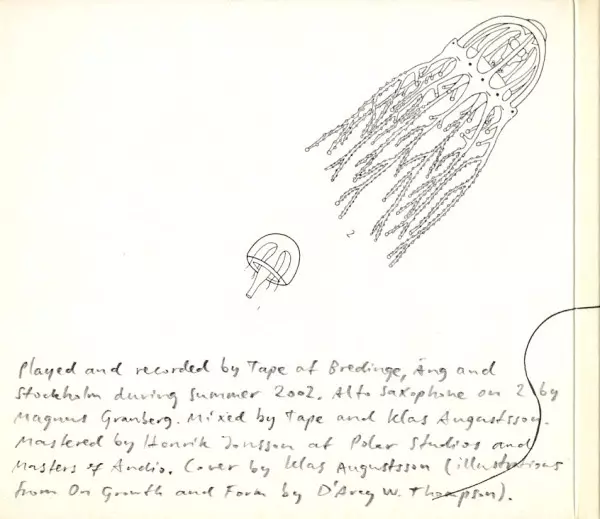 2
1
Played and recorded by Tape at Bredinge, Äng and
Stockholm during summer 2002. Alto saxophone on 2 by
Magnus Granberg. Mixed by Tape and Klas Augustsson.
Mastered by Henrik Jonsson at Polar Studios and
Masters of Audio. Cover by Klas Augustsson (illustrations
from On Growth and Form by D'Arcy W. Thompson).